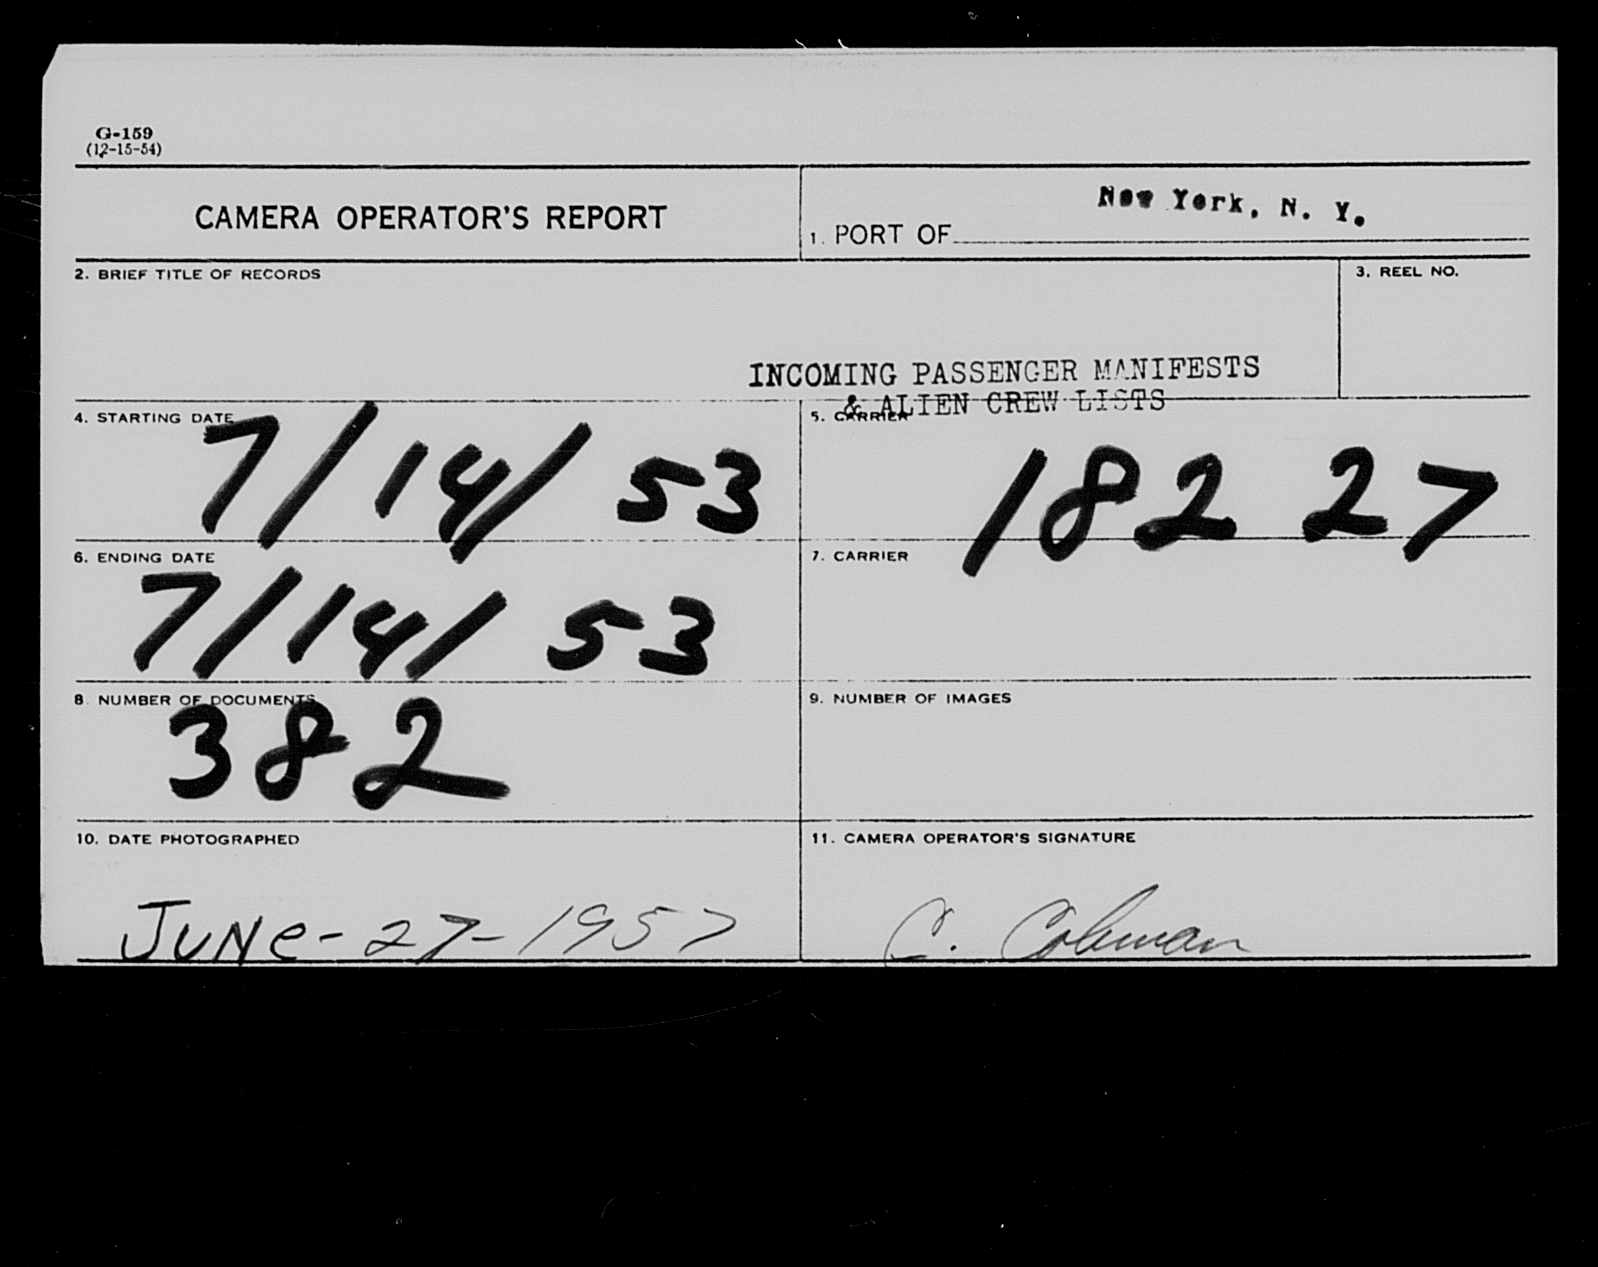 G-159
(12-15-54)
CAMERA OPERATOR'S REPORT
1. PORT OF New York, N. Y.
2. BRIEF TITLE OF RECORDS
3. REEL NO.
INCOMING PASSENGER MANIFESTS
& ALIEN CREW LISTS
4. STARTING DATE
7/14/53
5. CARRIER
182 27
6. ENDING DATE
7/14/53
7. CARRIER
8. NUMBER OF DOCUMENTS
382
9. NUMBER OF IMAGES
10. DATE PHOTOGRAPHED
JUNe-27-1957
11. CAMERA OPERATOR'S SIGNATURE
C. Coleman